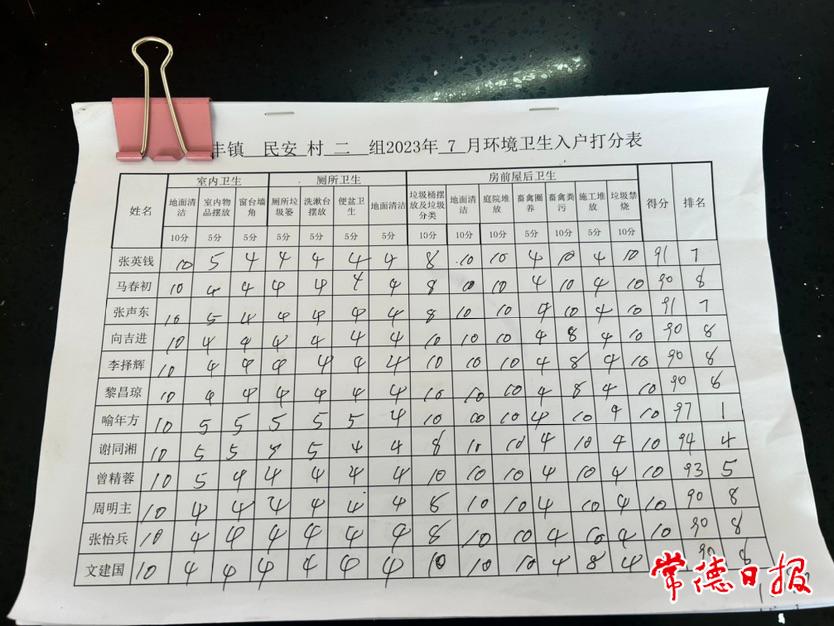 丰镇 民安 村 二 组2023年 7 月环境卫生入户打分表
姓名 室内卫生 厕所卫生 房前屋后卫生 得分 排名
地面清洁 室内物品摆放 窗台墙角 厕所垃圾篓 洗漱台摆放 便盆卫生 地面清洁 垃圾桶摆放及垃圾分类 地面清洁 庭院堆放 畜禽圈养 畜禽粪污 施工堆放 垃圾禁烧
10分 5分 5分 5分 5分 5分 5分 10分 10分 10分 5分 10分 5分 10分
张英钱 10 5 4 4 4 4 4 8 10 10 4 10 4 10 91 7
马春初 10 4 4 4 4 4 4 8 10 10 4 10 4 10 90 8
张声东 10 5 4 4 4 4 4 8 10 10 4 10 4 10 91 7
向吉进 10 4 4 4 4 4 4 10 10 10 4 8 4 10 90 8
李择辉 10 4 4 4 4 4 4 10 10 10 4 8 4 10 90 8
黎昌琼 10 4 4 4 4 4 4 10 10 10 4 8 4 10 90 8
喻年方 10 5 5 5 5 5 4 10 10 10 4 10 4 10 97 1
谢同湘 10 5 5 5 4 4 8 10 10 4 10 4 10 94 4
曾精蓉 10 5 4 4 4 4 4 10 10 10 4 10 4 10 93 5
周明主 10 4 4 4 4 4 4 8 10 10 4 10 4 10 90 8
张怡兵 10 4 4 4 4 4 4 8 10 10 4 10 4 10 90 8
文建国 10 4 4 4 4 4 4 10 10 10 4 8 4 90 8
常德日报